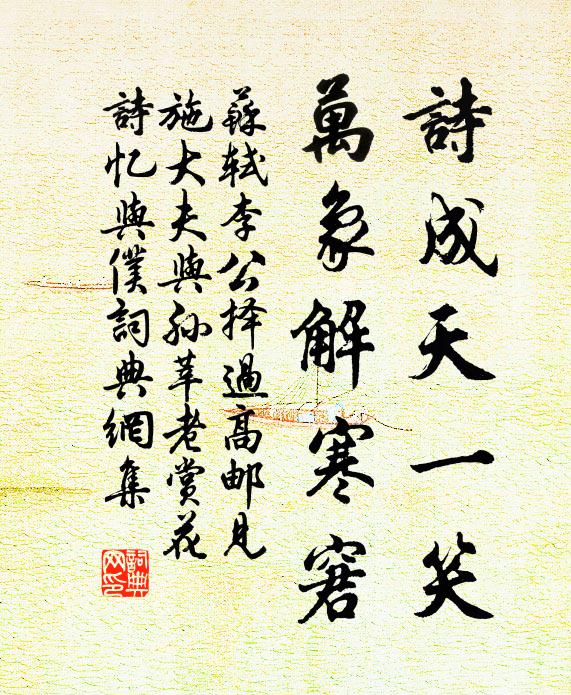 詩成天一笑
萬象解寒窘
蘇軾李公择過高邮見
施大夫與孙莘老賞花
詩忆與僕詞典網集
詞典网印